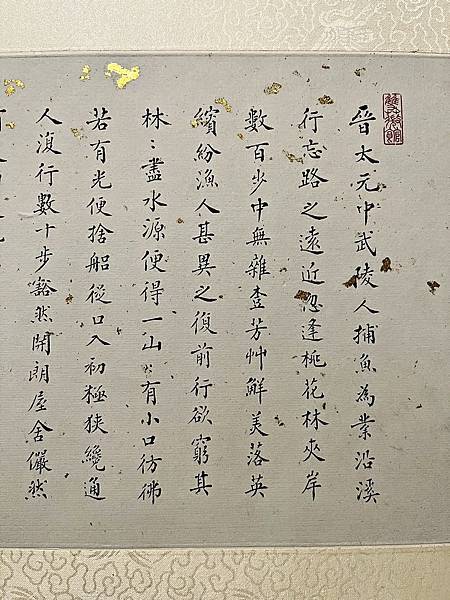 晉太元中武陵人捕魚為業沿溪
行忘路之遠近忽逢桃花林夾岸
數百步中無雜芳艸鮮美落英
繽紛漁人甚異之復前行欲窮其
林〻盡水源便得一山〻有小口彷彿
若有光便捨船從口入初極狹纔通
人復行數十步豁然開朗屋舍儼然